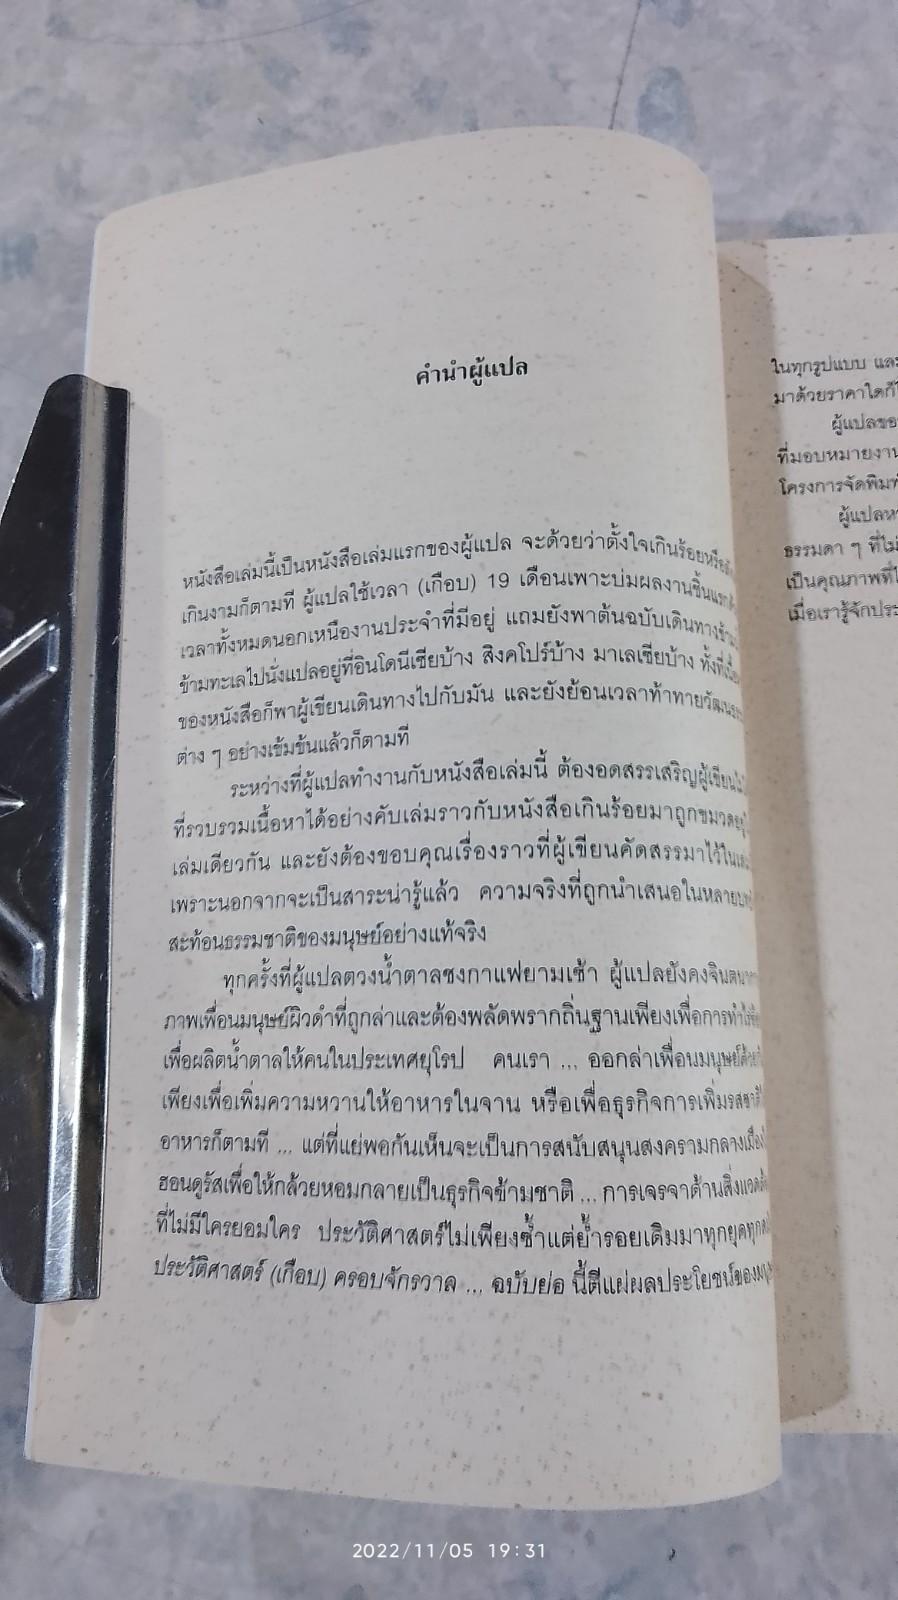 คำนำผู้แปล
หนังสือเล่มนี้เป็นหนังสือเล่มแรกของผู้แปล จะด้วยว่าตั้งใจเกินร้อยหรือ
เกินงามก็ตามที ผู้แปลใช้เวลา (เกือบ) 19 เดือนเพาะบ่มผลงานชิ้นแรก
เวลาทั้งหมดนอกเหนืองานประจำที่มีอยู่ แถมยังพาต้นฉบับเดินทางข้าม
ข้ามทะเลไปนั่งแปลอยู่ที่อินโดนีเซียบ้าง สิงคโปร์บ้าง มาเลเซียบ้าง ทั้งที่เนื้อ
ของหนังสือก็พาผู้เขียนเดินทางไปกับมัน และยังย้อนเวลาท้าทายวัฒน
ต่าง ๆ อย่างเข้มข้นแล้วก็ตามที
ระหว่างที่ผู้แปลทำงานกับหนังสือเล่มนี้ ต้องอดสรรเสริญผู้เขียน
ที่รวบรวมเนื้อหาได้อย่างคับเล่มราวกับหนังสือเกินร้อยมาถูกขมวด
เล่มเดียวกัน และยังต้องขอบคุณเรื่องราวที่ผู้เขียนคัดสรรมาไว้ใน
เพราะนอกจากจะเป็นสาระน่ารู้แล้ว ความจริงที่ถูกนำเสนอในหลาย
สะท้อนธรรมชาติของมนุษย์อย่างแท้จริง
ทุกครั้งที่ผู้แปลตวงน้ำตาลชงกาแฟยามเช้า ผู้แปลยังคงจินต
ภาพเพื่อนมนุษย์ผิวดำที่ถูกล่าและต้องพลัดพรากถิ่นฐานเพียงเพื่อการทำ
เพื่อผลิตน้ำตาลให้คนในประเทศยุโรป คนเรา ... ออกล่าเพื่อนมนุษย์
เพียงเพื่อเพิ่มความหวานให้อาหารในจาน หรือเพื่อธุรกิจการเพิ่มรสชาติ
อาหารก็ตามที ... แต่ที่แย่พอกันเห็นจะเป็นการสนับสนุนสงครามกลางเมือง
ฮอนดูรัสเพื่อให้กล้วยหอมกลายเป็นธุรกิจข้ามชาติ ... การเจรจาด้านสิ่งแวด
ที่ไม่มีใครยอมใคร ประวัติศาสตร์ไม่เพียงซ้ำแต่ย้ำรอยเดิมมาทุกยุคทุก
ประวัติศาสตร์ (เกือบ) ครอบจักรวาล ... ฉบับย่อ นี้ตีแผ่ผลประโยชน์ของ
ในทุกรูปแบบ และ
มาด้วยราคาใดก็
ผู้แปลขอ
ที่มอบหมายงาน
โครงการจัดพิมพ์
ผู้แปลห
ธรรมดา ๆ ที่ไม่
เป็นคุณภาพที่
เมื่อเรารู้จักประ
2022/11/05 19:31